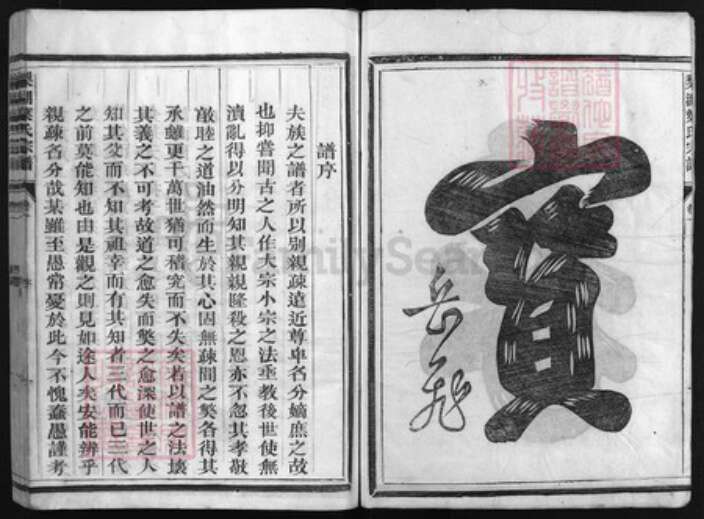 寶
岳飛
譜序
夫族之譜者所以別親疎遠近尊卑名分嫡庶之故
也抑嘗聞古之人作大宗小宗之法垂教後世使無
瀆亂得以分明知其親親隆殺之恩亦不忽其孝敬
敵睦之道油然而生於其心因無疎間之獘各得其
承雖更千萬世猶可稽究而不失矣若以譜之法壊
其義之不可考故道之愈失而獘之愈深使世之人
知其父而不知其祖幸而有其知者三代而已三代
之前莫能知也由是觀之則見如途人矣安能辨乎
親疎名分哉某雖至愚常憂於此今不愧蠢愚謹考
FamilySearch